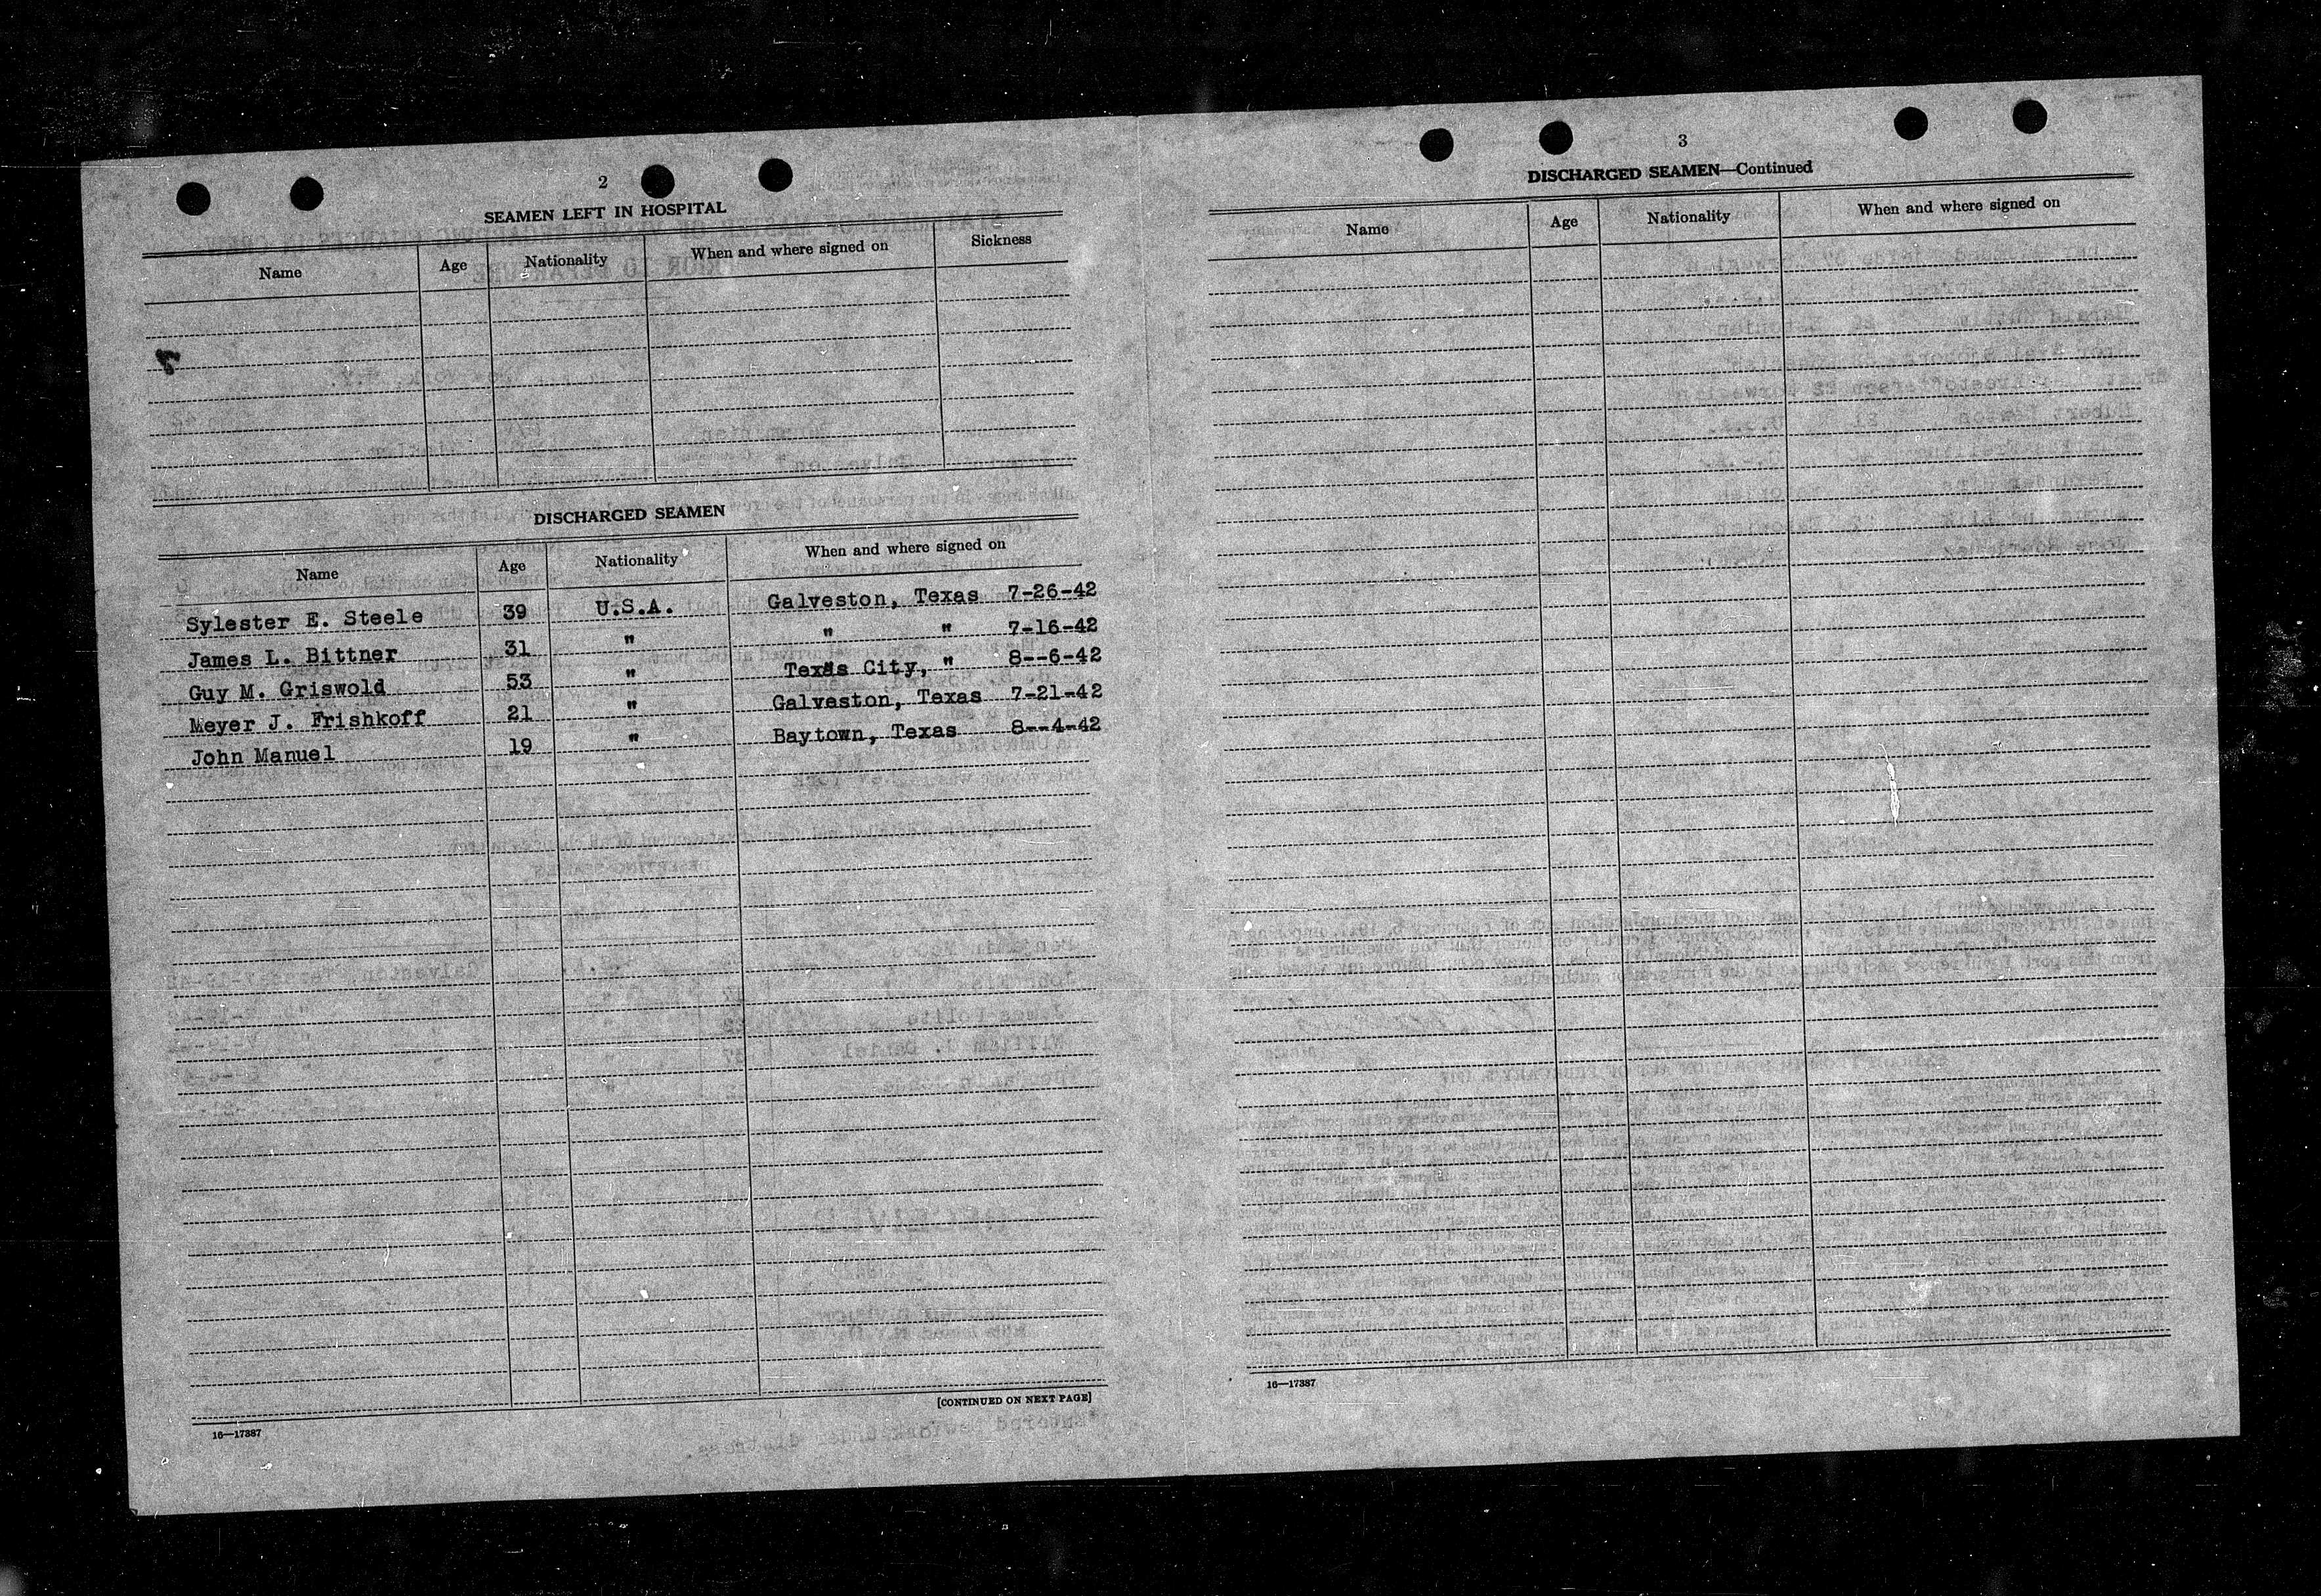 2
SEAMEN LEFT IN HOSPITAL
Name Age Nationality When and where signed on Sickness
DISCHARGED SEAMEN
Name Age Nationality When and where signed on
Sylester E. Steele 39 U.S.A. Galveston, Texas 7-26-42
James L. Bittner 31 " " " 7-16-42
Guy M. Griswold 53 " Texas City, " 8--6-42
Meyer J. Frishkoff 21 " Galveston, Texas 7-21-42
John Manuel 19 " Baytown, Texas 8--4-42
[CONTINUED ON NEXT PAGE]
16—17387
3
DISCHARGED SEAMEN—Continued
Name Age Nationality When and where signed on
16—17387